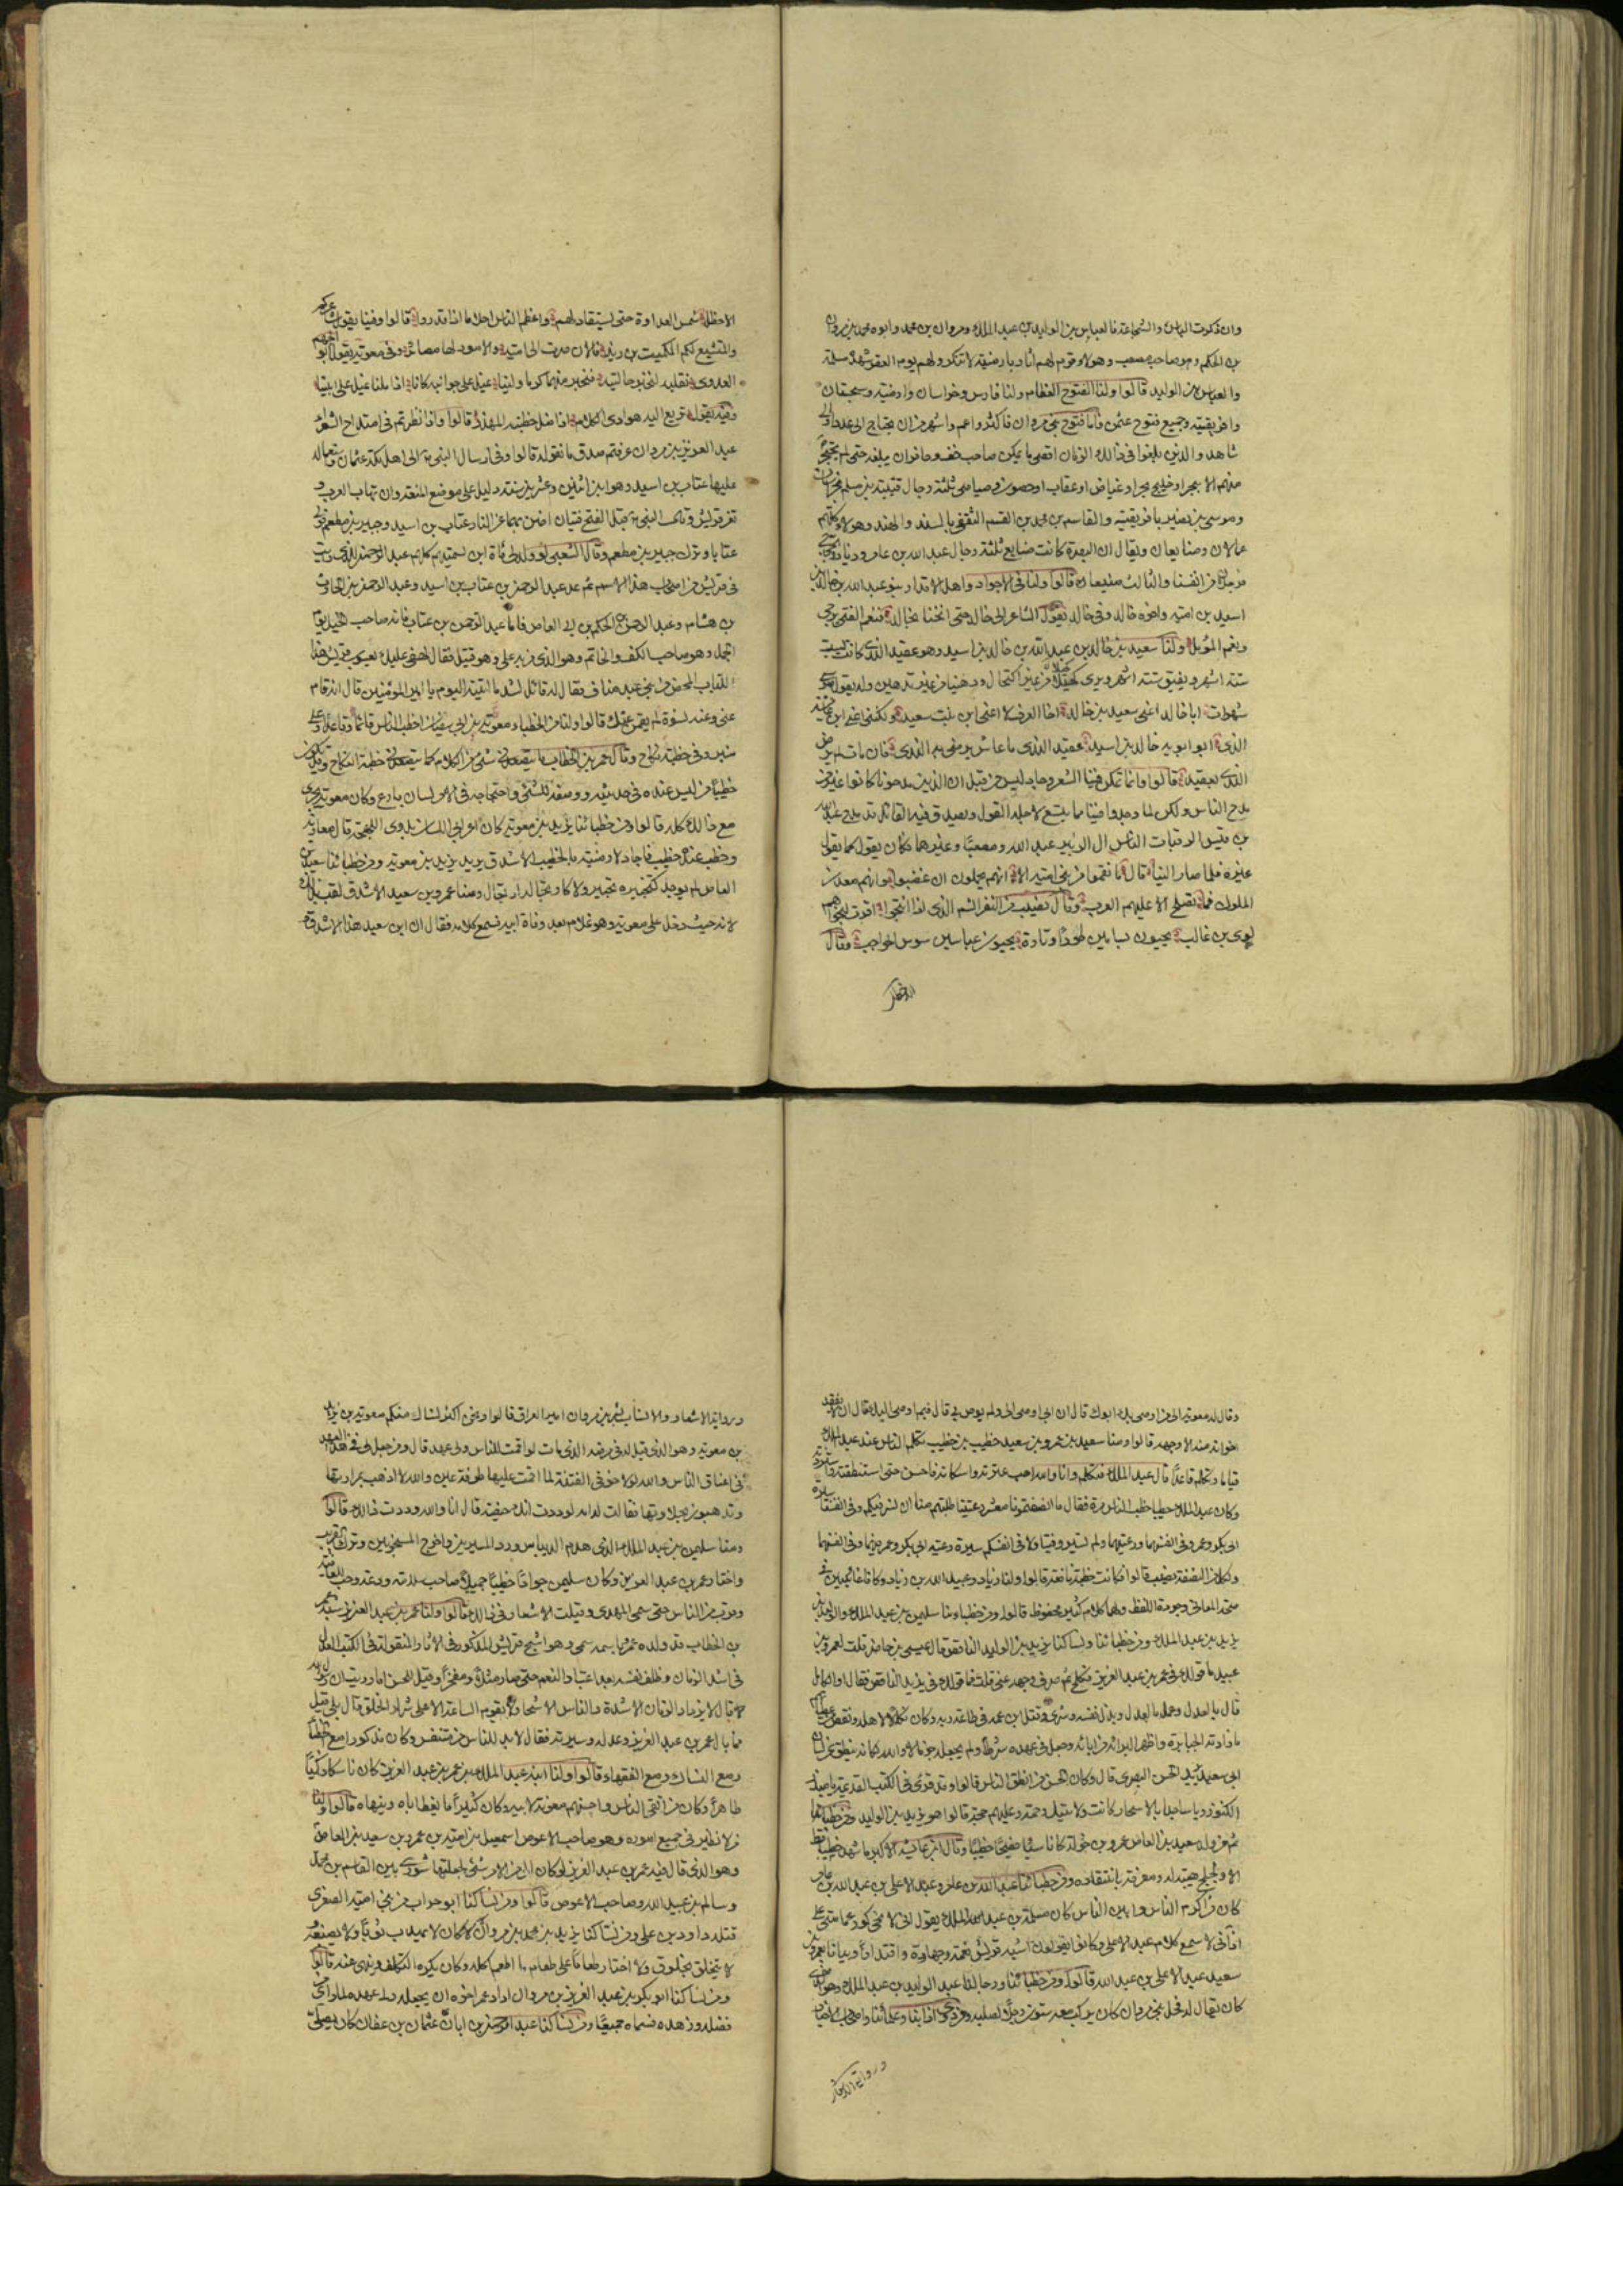 وان ذكرت الباس والشجاعة فالعباس بن الوليد بن عبد الملك ومروان بن محمد وابوه محمد بن مروان
بن الحكم وهو صاحب مصعب وهولاء قوم لهم اثار بارمينية لا تنكر ولهم يوم العقر شهده مسلمة
والعباس بن الوليد قالوا ولنا الفتوح العظام ولنا فارس وخراسان وارمينية وسجستان
وافريقية وجميع فتوح عثمن فاما فتوح بني مروان فاكثر واعم واشهر من ان يحتاج الى عدد او الى
شاهد والذين بلغوا في ذلك الزمان اقصى ما يمكن صاحب خف وحافر ان يبلغه حتى لم يحتجز
منهم الا ببحر او خليج بحر او غياض او عقاب او حصون وصياصي ثلثة رجال قتيبة بن مسلم بخراسان
وموسى بن نصير بافريقية والقاسم بن محمد بن القسم الثقفي بالسند والهند وهولاء كلهم
عمالنا وصنايعنا ويقال ان البصرة كانت صنايع ثلثة رجال عبد الله بن عامر وزياد والحجاج
فرجلان من انفسنا والثالث صنيعنا قالوا ولنا في الاجواد واهل الاقدار بنو عبد الله بن خالد بن
اسيد بن امية واخوه خالد وفي خالد يقول الشاعر الى خالد حتى انخنا بخالد فنعم الفتى يرجى
ونعم المؤمل ولنا سعيد بن خالد بن عبد الله بن خالد بن اسيد وهو عقيد الندى كان يسبت
ستة اشهر ويفيق ستة اشهر ويرى كحيلا من غير اكتحال ودهينا من غير تدهين وله يقول موسى
شهوات ابا خالد اعني سعيد بن خالد اخا العرف لا اعني ابن بنت سعيد ولكنني اعني ابن عايشة
الذي ابو ابويه خالد بن اسيد عقيد الندى ما عاش يرضى به الندى فان مات لم يرض
الندى بعقيد قالوا وانما تمكن فينا الشعر وجاد ليس من قبل ان الذين مدحونا كانوا غير من
مدح الناس ولكن لما وجدوا فينا مما يتسع لاجله القول ويصدق فيه القائل قد مدح عبد الله
بن قيس الرقيات الناس ال الزبير عبد الله ومصعبا وغيرهما فكان يقول كما يقول
غيره فلما صار الينا قال ما نقموا من بني امية الا انهم يحلمون ان غضبوا وانهم معدن
الملوك فما تصلح الا عليهم العرب وقال نصيب من النفر الشم الذين اذا انتجوا اقرت لنجواهم
لوي بن غالب يحيون بسامين طورا وتارة يحيون عباسين شوس الحواجب وقال
الاخطل
الاخطل شمس العداوة حتى يستقاد لهم واعظم الناس احلاما اذا قدروا قالوا وفينا يقول شاعركم
والمتشيع لكم الكميت بن زيد فالان صرت الى امية والامور لها مصائر وفي معوية يقول ابو الجهم
العدوي نقلبه لنخبر حالتيه فنخبر منهما كرما ولينا نميل على جوانبه كانا اذا ملنا نميل على ابينا
وفيه يقول تريع اليه هوادي الكلام اذا ضل خطبته المهذر قالوا واذا نظرتم في امتداح الشعراء
عبد العزيز بن مروان عرفتم صدق ما نقوله قالوا وفي ارسال النبي الى اهل مكة عثمان واستعماله
عليها عتاب بن اسيد وهو ابن اثنين وعشرين سنة دليل على موضع المنعة وان تهاب العرب و
تعز قريش وقال النبي قبل الفتح فتيان اضن بهما عن النار عتاب بن اسيد وجبير بن مطعم فولى
عتابا وترك جبير بن مطعم وقال الشعبي لو ولد لي مائة ابن لسميتهم كلهم عبد الرحمن للذي رايت
في قريش من اصحاب هذا الاسم ثم عد عبد الرحمن بن عتاب بن اسيد وعبد الرحمن بن الحارث
بن هشام وعبد الرحمن بن الحكم بن ابي العاص فاما عبد الرحمن بن عتاب فانه صاحب الخيل يوم
الجمل وهو صاحب الكف والخاتم وهو الذي مر به علي وهو قتيل فقال لهفي عليك يعسوب قريش هذا
اللباب المحض من بني عبد مناف فقال له قائل لشد ما اتيته اليوم يا امير المؤمنين قال انه قام
عني وعنه نسوة لم يقمن عنك قالوا ولنا من الخطباء معوية بن ابي سفيان اخطب الناس قائما وقاعدا وعلى
منبر وفي خطبة نكاح وقال عمر بن الخطاب ما يتصعدني شيء من الكلام كما يتصعدني خطبة النكاح وقد يكون
خطيبا من ليس عنده في حديثه ووصفه للشيء واحتجاجه في الامر لسان بارع وكان معوية يجري
مع ذلك كله قالوا ومن خطبائنا يزيد بن معوية كان اعرابي اللسان بدوي اللهجة قال معاوية
وخطب عنده خطيب فاجاد لارمينه بالخطيب الاشدق يريد يزيد بن معوية ومن خطبائنا سعيد بن
العاص لم يوجد كتحبيره تحبير ولا كارتجاله ارتجال ومنا عمرو بن سعيد الاشدق لقب بذلك
لانه حيث دخل على معوية وهو غلام بعد وفاة ابيه فسمع كلامه فقال ان ابن سعيد هذا الاشدق
وقال له معوية الى من اوصى بك ابوك قال ان ابي اوصى الي ولم يوص بي قال فبم اوصى اليك قال ان لا يفقد
اخوانه منه الا وجهه قالوا ومنا سعيد بن عمرو بن سعيد خطيب بن خطيب تكلم الناس عند عبد الملك
قياما وتكلم قاعدا قال عبد الملك فتكلم وانا والله احب عثرته واسكاته فاحسن حتى استنطقته فاستزدته
وكان عبد الملك خطيبا خطب الناس مرة فقال ما انصفتمونا معشر رعيتنا طلبتم منا ان نسير فيكم وفي انفسنا سيرة
ابي بكر وعمر في انفسهما ورعيتهما ولم تسيروا فينا ولا في انفسكم سيرة رعية ابي بكر وعمر فيهما وفي انفسهما
ولكل من النصفة نصيب قالوا فكانت خطبته نافعة قالوا ولنا زياد وعبيد الله بن زياد وكانا غنيين في
صحة المعاني وجودة اللفظ ولهما كلام كثير محفوظ قالوا ومن خطبائنا سليمن بن عبد الملك والوليد بن
يزيد بن عبد الملك ومن خطبائنا ونساكنا يزيد بن الوليد الناقص قال عيسى بن حاضر قلت لعمرو بن
عبيد ما قولك في عمر بن عبد العزيز فكلح ثم صرف وجهه عني قلت فما قولك في يزيد الناقص فقال او الكامل
قال بالعدل وعمل بالعدل وبذل نفسه وقتل ابن عمه في طاعة ربه وكان نكالا لاهله ونقص من اعطياتهم
ما زادته الجبابرة واظهر البراءة من ابائه وجعل في عهده شرطا ولم يجعله جزما لا والله لكانه ينطق عن لسان
ابي سعيد يريد الحسن البصري قال وكان الحسن من انطق الناس قالوا وقد قرئ في الكتب القديمة يا مبذر
الكنوز ويا ساجدا بالاسحار كانت ولايتك رحمة وعليهم حجة قالوا هو يزيد بن الوليد ومن خطبائنا
ثم من ولد سعيد بن العاص عمرو بن خولة كان ناسبا فصيحا خطيبا وقال ابن عائشة الاكبر ما شهد خطيبا قط
الا ولجلج هيبة له ومعرفة بانتقاده ومن خطبائنا عبد الله بن عامر وعبد الاعلى بن عبد الله بن عامر
كانا من اكرم الناس وابين الناس كان مسلمة بن عبد الملك يقول اني لانحي كور عمامتي على
اذني لاسمع كلام عبد الاعلى وكانوا يقولون اشبه قريش نغمة وجهارة واقتدارا وبيانا بعمرو بن
سعيد عبد الاعلى بن عبد الله قالوا ومن خطبائنا ورجالنا عبد الوليد بن عبد الملك وهو الذي
كان يقال له فحل بني مروان كان يركب معه ستون رجلا لصلبه ومن ذوي ادابنا وعلمائنا واصحاب الاخبار
ورواية الاشعار
ورواية الاشعار والانساب بشر بن مروان امير العراق قالوا ونحن اكثر نساكا منكم معوية بن يزيد
بن معوية وهو الذي قيل له في مرضه الذي مات لو اقمت للناس ولي عهد قال ومن جعل لي هذا العهد
في اعناق الناس والله لولا خوفي الفتنة لما اقمت عليها طرفة عين والله لا اذهب بمرارتها
وتذهبون بحلاوتها فقالت له امه لوددت انك حيضة قال انا والله وددت ذلك قالوا
ومنا سليمن بن عبد الملك الذي هدم الديماس ورد المسيرين واخرج المسجونين وترك القريب
واختار عمر بن عبد العزيز وكان سليمن جوادا خطيبا جميلا صاحب سلامة ودعة وحب للعافية
وقرب من الناس حتى سمي المهدي وقيلت الاشعار في ذلك قالوا ولنا عمر بن عبد العزيز شبه عمر
بن الخطاب قد ولده عمر وباسمه سمي وهو اشج قريش المذكور في الاثار المنقولة في الكتب العدل
في اشد الزمان وظلف نفسه بعد اعتياد النعم حتى صار مثلا ومفخرا وقيل للحسن اما رويت ان رسول الله
قال لا يزداد الزمان الا شدة والناس الا شحا ولا تقوم الساعة الا على شرار الخلق قال بلى قيل
فما بال عمر بن عبد العزيز وعدله وسيرته فقال لا بد للناس من متنفس وكان مذكورا مع الخطباء
ومع النساك ومع الفقهاء قالوا ولنا ابنه عبد الملك بن عمر بن عبد العزيز كان ناسكا زكيا
طاهرا وكان من اتقى الناس واحسنهم معونة لابيه وكان كثيرا ما يعظ اباه وينهاه قالوا ولنا
من لا نظير له في جميع اموره وهو صاحب الاعوص اسمعيل بن امية بن عمرو بن سعيد بن العاص
وهو الذي قال فيه عمر بن عبد العزيز لو كان الي من الامر شيء لجعلتها شورى بين القاسم بن محمد
وسالم بن عبد الله وصاحب الاعوص قالوا ومن نساكنا ابو حراب من بني امية الصغرى
قتله داود بن علي ومن نساكنا يزيد بن محمد بن مروان كان لا يهدب ثوبا ولا يصبغه
ولا يتخلق بخلوق ولا اختار طعاما على طعام ما اطعم اكله وكان يكره التكلف وينهى عنه قالوا
ومن نساكنا ابو بكر بن عبد العزيز بن مروان اراد عمر اخوه ان يجعله ولي عهده لما راى من
فضله وزهده فسماه جميعا ومن نساكنا عبد الرحمن بن ابان بن عثمان بن عفان كان يصلي